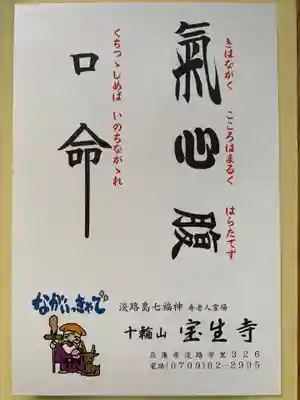 きはながく　こころはまるく　はらたてず
氣心腹
くちつゝしめば　いのちながゝれ
口命
淡路島七福神 寿老人霊場
十輪山 宝生寺
兵庫県淡路市里326
電話(0799)62-2905